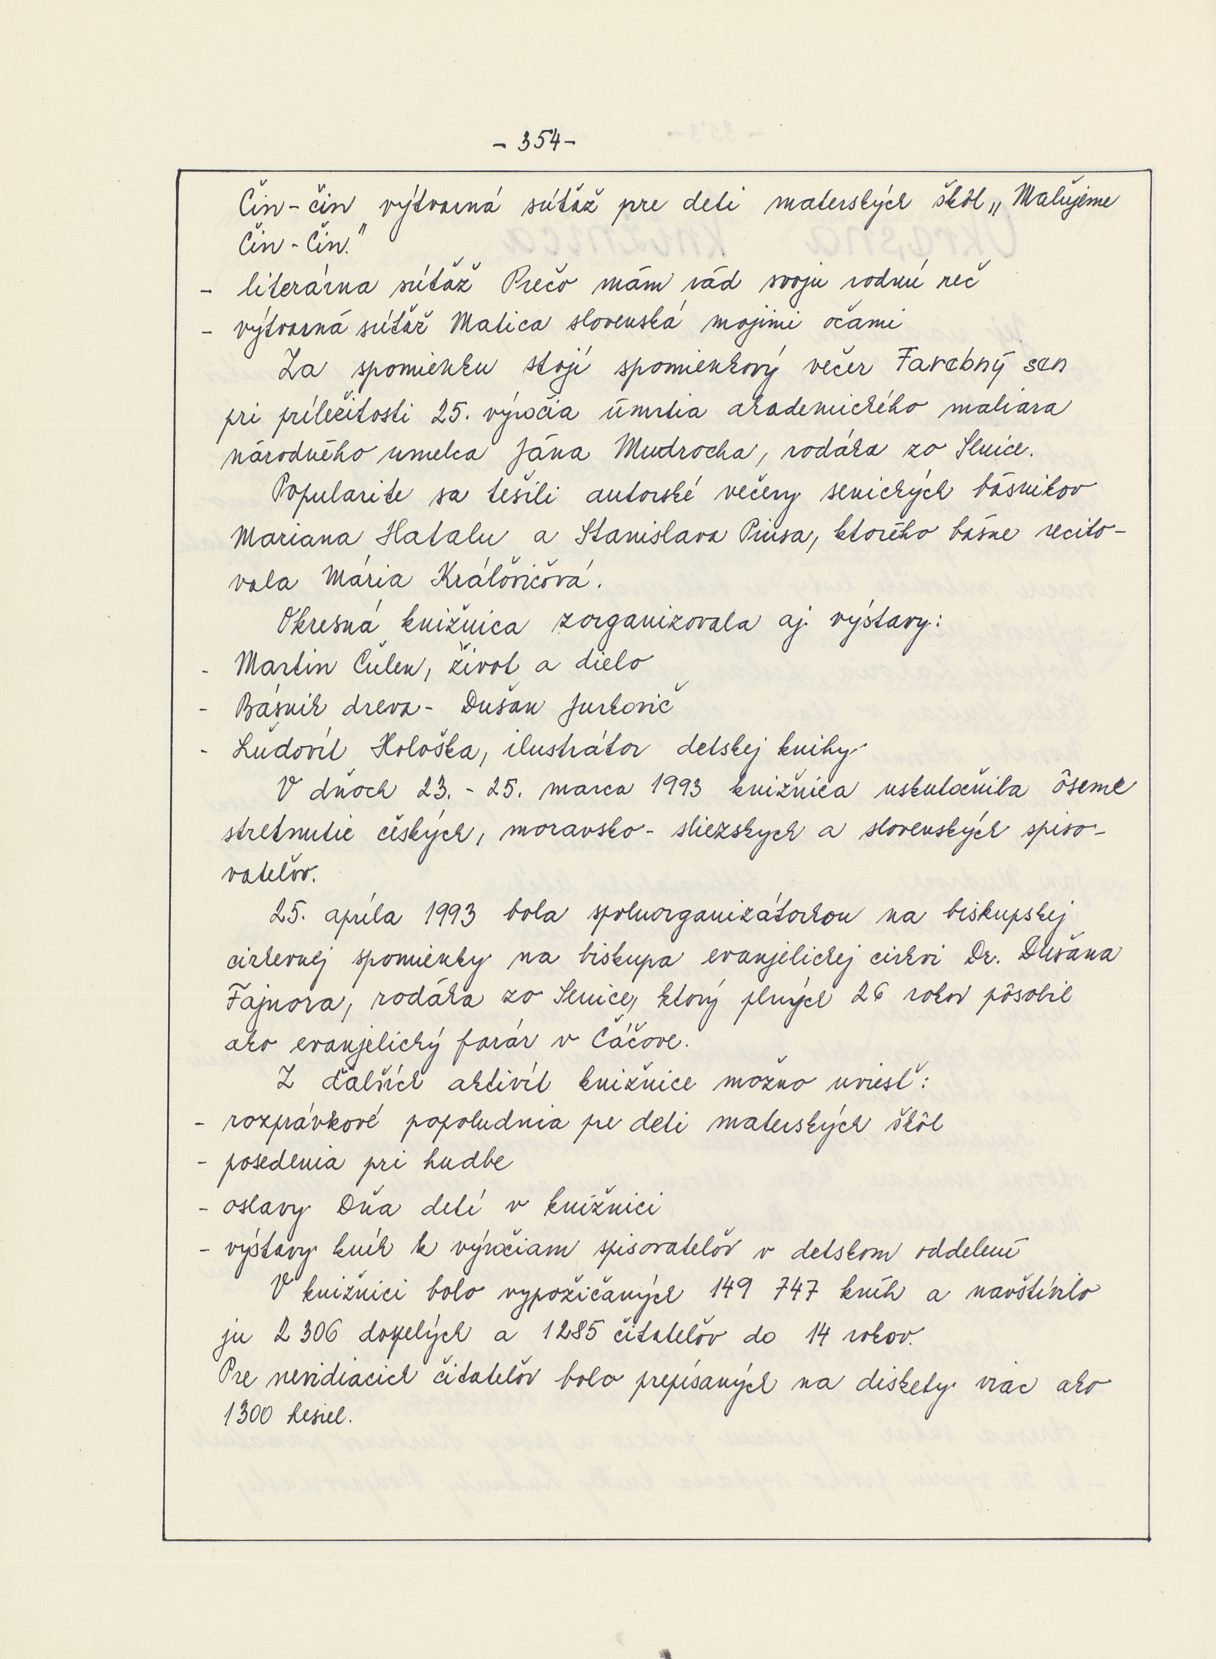 - 354 -
Čin-čin výtvarná súťaž pre deti materských škôl „Maľujeme
Čin-Čin."
- literárna súťaž Prečo mám rád svoju rodnú reč
- výtvarná súťaž Matica slovenská mojimi očami
Za spomienku stojí spomienkový večer Farebný sen
pri príležitosti 25. výročia úmrtia akademického maliara
národného umelca Jána Mudrocha, rodáka zo Senice.
Popularite sa tešili autorské večery senických básnikov
Mariana Hatalu a Stanislava Piusa, ktorého básne recito-
vala Mária Kráľovičová.
Okresná knižnica zorganizovala aj výstavy:
- Martin Čulen, život a dielo
- Básnik dreva - Dušan Jurkovič
- Ľudovít Hološka, ilustrátor detskej knihy
V dňoch 23. - 25. marca 1993 knižnica uskutočnila ôsme
stretnutie českých, moravsko-sliezskych a slovenských spiso-
vateľov.
25. apríla 1993 bola spoluorganizátorkou na biskupskej
cirkevnej spomienky na biskupa evanjelickej cirkvi Dr. Dušana
Fajnora, rodáka zo Senice, ktorý plných 26 rokov pôsobil
ako evanjelický farár v Čáčove.
Z ďalších aktivít knižnice možno uviesť:
- rozprávkové popoludnia pre deti materských škôl
- posedenia pri hudbe
- oslavy Dňa detí v knižnici
- výstavy kníh k výročiam spisovateľov v detskom oddelení
V knižnici bolo vypožičaných 149 747 kníh a navštívilo
ju 2 306 dospelých a 1285 čitateľov do 14 rokov.
Pre nevidiacich čitateľov bolo prepísaných na diskety viac ako
1300 hesiel.